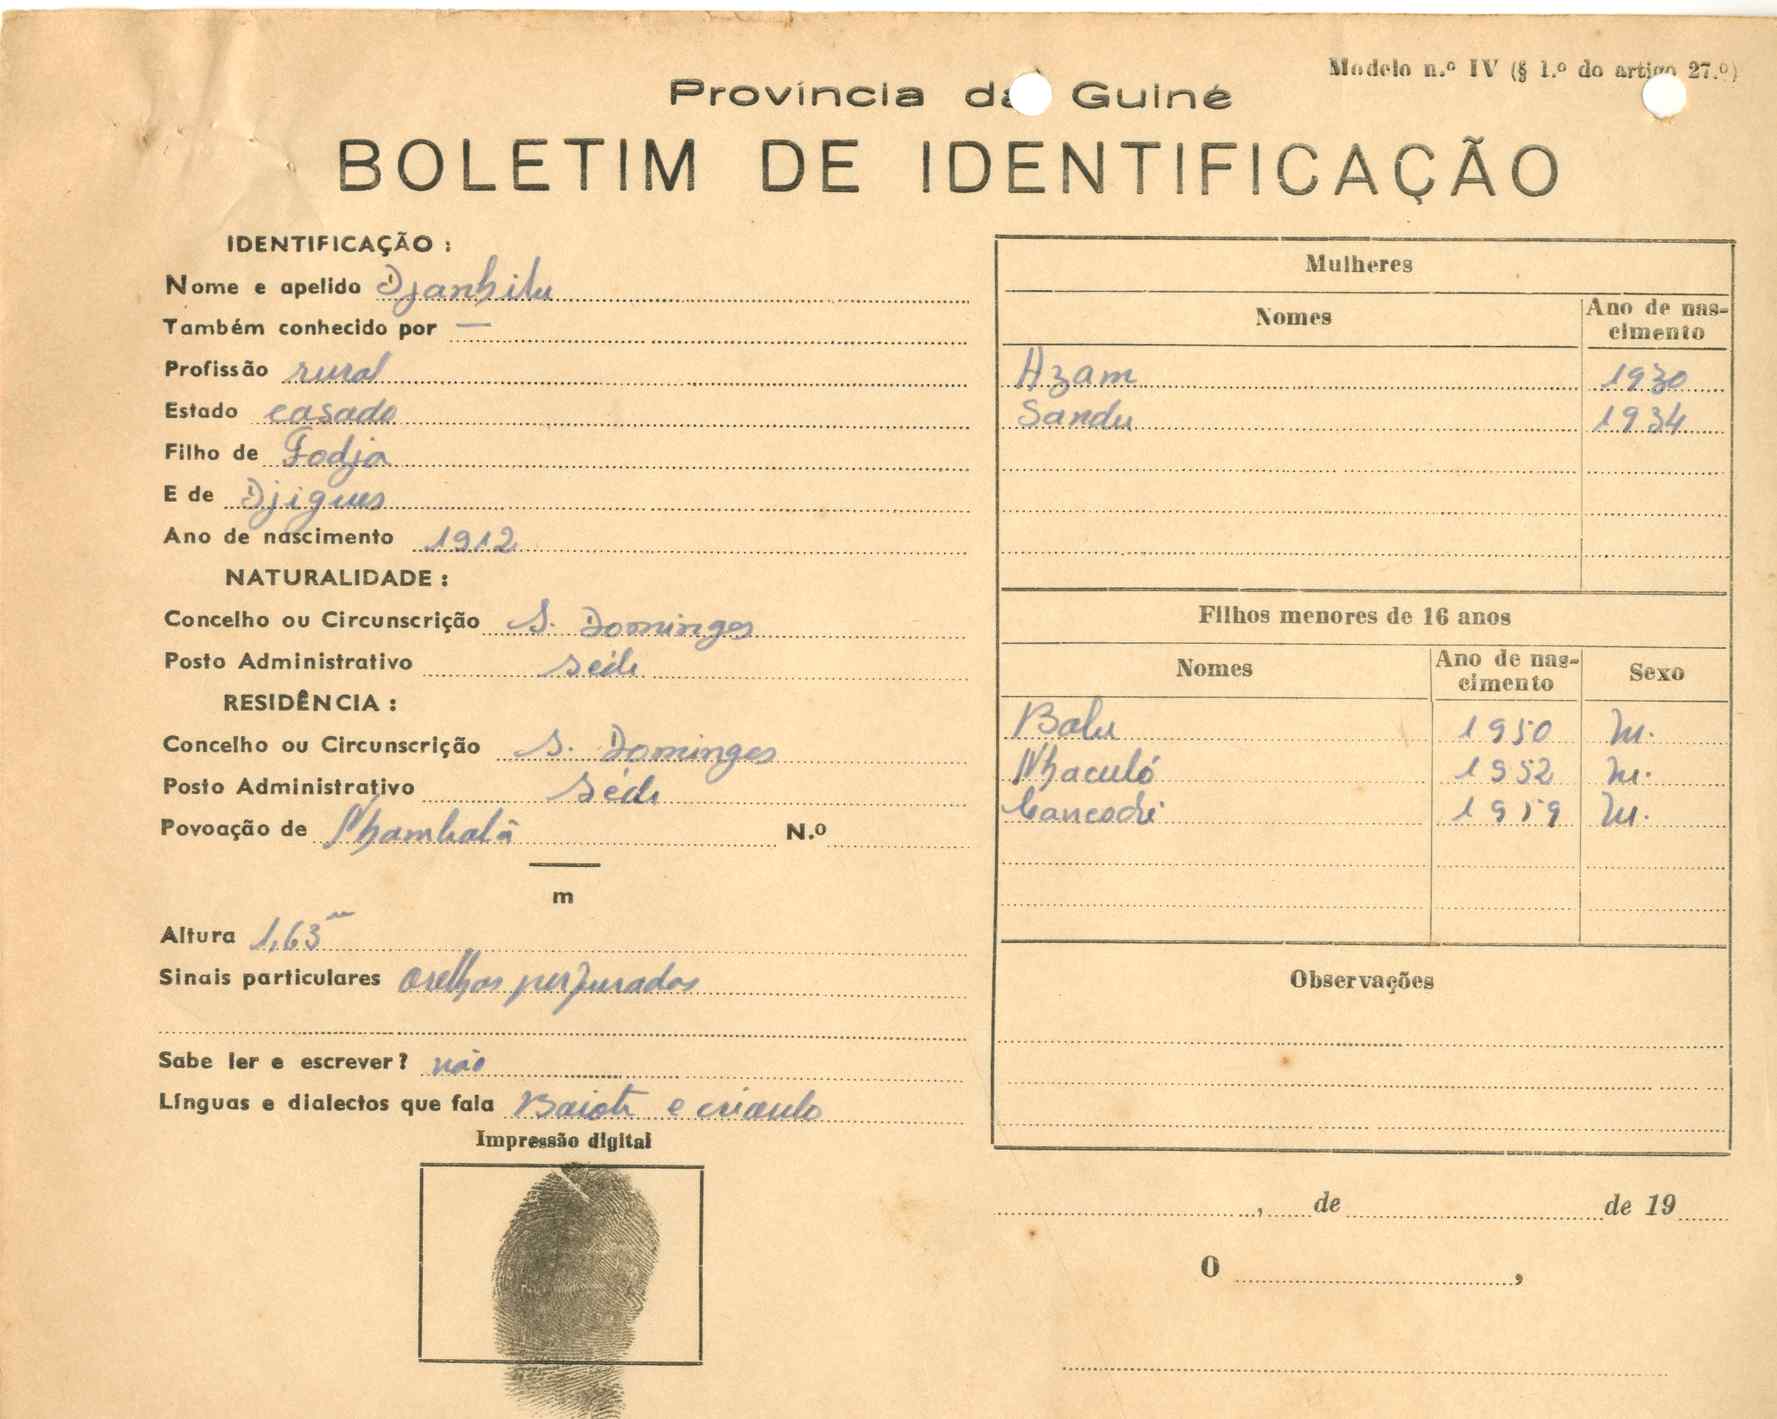 Modelo n.º IV (§ 1.º do artigo 27.º)
Província da Guiné
BOLETIM DE IDENTIFICAÇÃO
IDENTIFICAÇÃO :
Nome e apelido Djanbilu
Também conhecido por —
Profissão rural
Estado casado
Filho de Fodja
E de Djigues
Ano de nascimento 1912
NATURALIDADE :
Concelho ou Circunscrição S. Domingos
Posto Administrativo séde
RESIDÊNCIA :
Concelho ou Circunscrição S. Domingos
Posto Administrativo séde
Povoação de Nhambalã N.º
m
Altura 1,63m
Sinais particulares orelhas perfuradas
Sabe ler e escrever? não
Línguas e dialectos que fala Baiote e crioulo
Impressão digital
Mulheres
Nomes Ano de nas-
cimento
Azam 1930
Sandu 1934
Filhos menores de 16 anos
Nomes Ano de nas-
cimento Sexo
Balu 1950 M.
Nhaculó 1952 M.
1959 M.
Observações
, de de 19
O ,